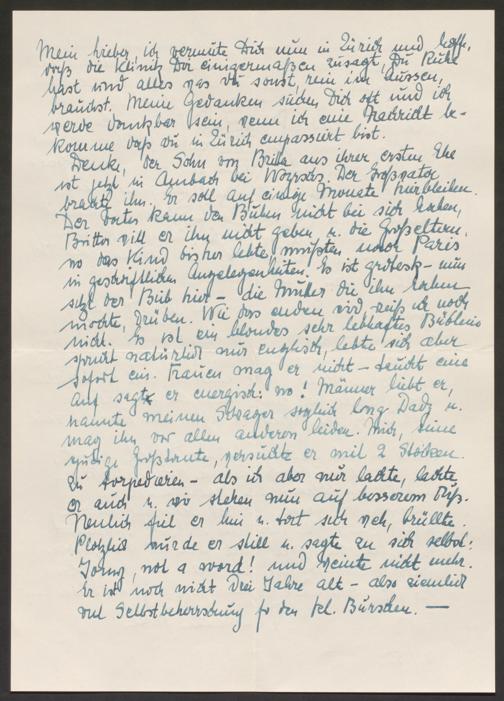 Mein Lieber, ich vermute Dich nun in Zürich und hoffe,
daß die Klinik Dir einigermaßen zusagt, Du Ruhe
hast und alles was Du sonst, rein im Aussen,
brauchst. Meine Gedanken suchen Dich oft und ich
werde dankbar sein, wenn ich eine Nachricht be-
komme daß du in Zürich einpassiert bist.
Denke, der Sohn von aus ihrer ersten Ehe
ist jetzt in Ambach bei Der Großvater
brachte ihn. Er soll auf einige Monate hierbleiben.
Der Vater kann den Buben nicht bei sich haben,
will er ihn nicht geben u. die Großeltern,
wo das Kind bisher lebte mußten nach Paris
in geschäftlichen Angelegenheiten. Es ist grotesk – nun
sitzt der Bub hier – die Mutter die ihn haben
möchte, drüben. Wie das enden wird weiß ich noch
nicht. Es ist ein blondes sehr lebhaftes Büblein
spricht natürlich nur englisch, lebte sich aber
sofort ein. Frauen mag er nicht – taucht eine
auf sagt er energisch: no! Männer liebt er,
nannte meinen Schwager sogleich long Dady u.
mag ihn vor allen anderen leiden. Mich, seine
Großtante, versuchte er mit 2 Stöcken
zu torpedieren – als ich aber nur lachte, lachte
er auch u. wir stehen nun auf besserem Fuß.
Neulich fiel er hin u. tat sich weh, brüllte.
Plötzlich wurde er still u. sagte zu sich selbst:
not a word! und weinte nicht mehr.
Er ist noch nicht drei Jahre alt – also ziemlich
viel Selbstbeherrschung für den kl. Burschen. —